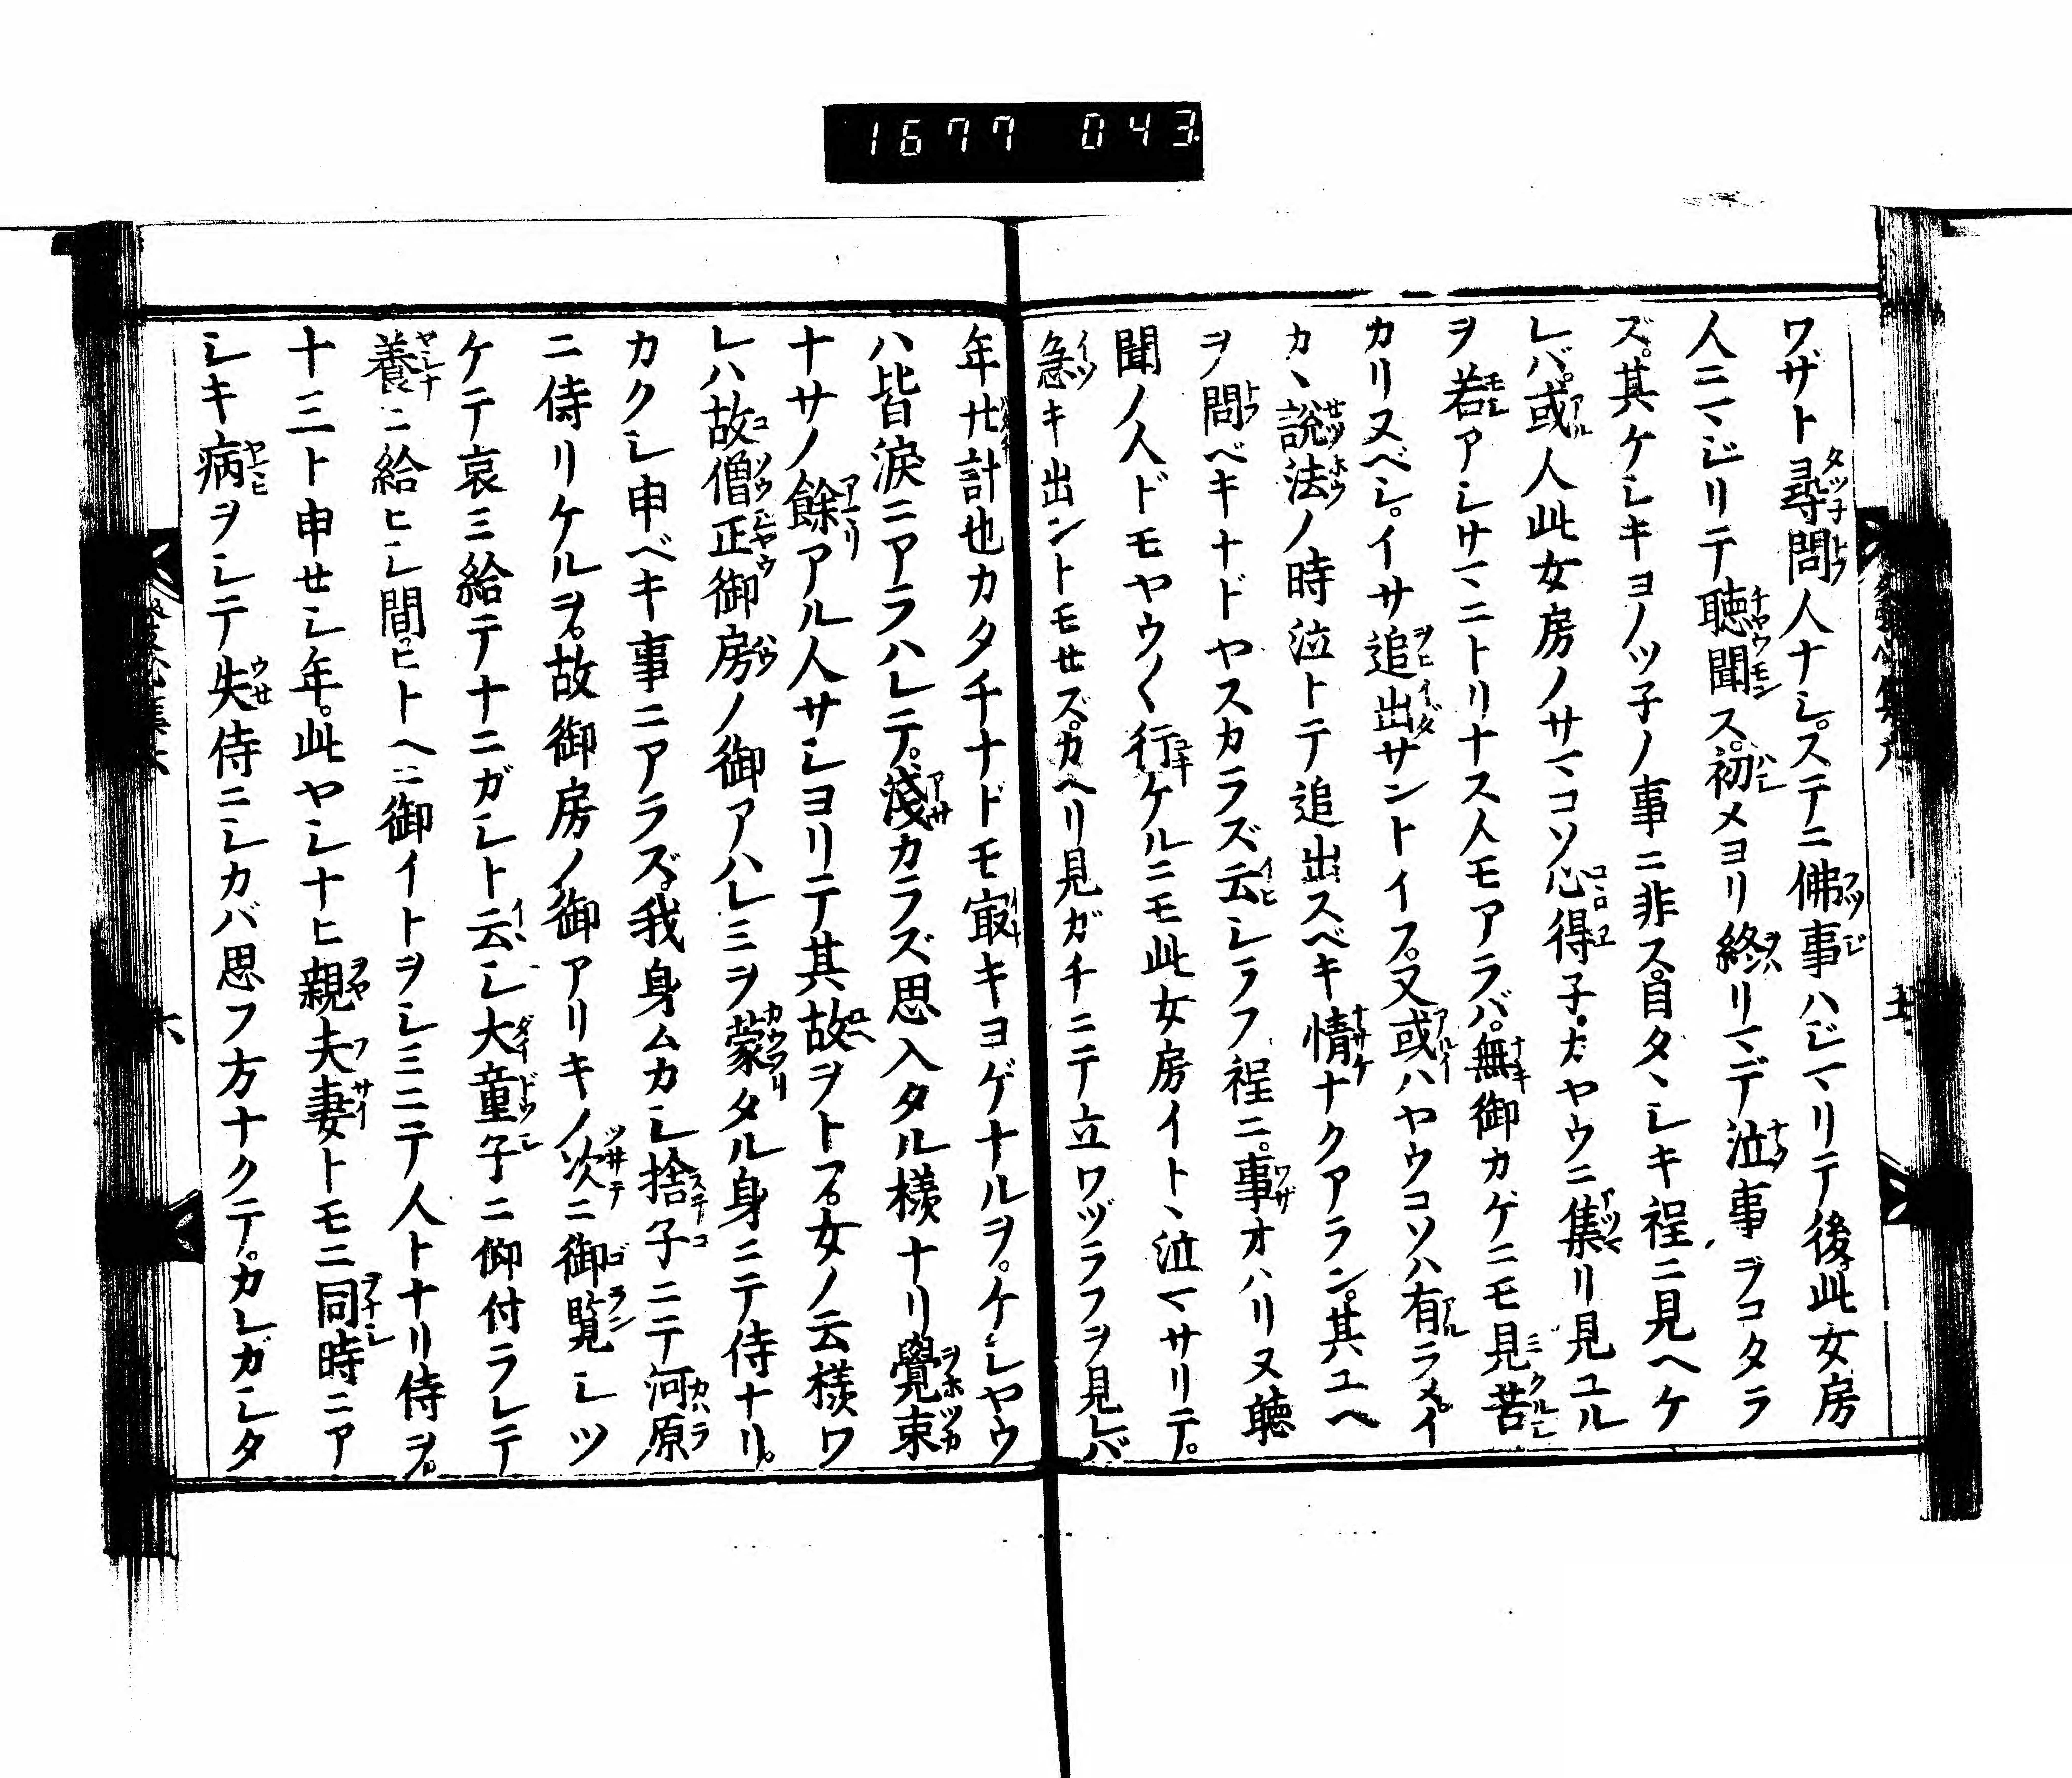 1677 043
ワザト尋問人ナシ。ステニ佛事ハジマリテ後。此女房
人ニマジリテ聴聞ス。初メヨリ終リマデ泣事ヲコタラ
ズ。其ケシキヨノツ子ノ事ニ非ス。自タヽシキ程ニ見ヘケ
レバ。或人此女房ノサマコソ心得子。カヤウニ集リ見ユル
ヲ若アシサマニトリナス人モアラバ。無御カゲニモ見苦
カリヌベシ。イサ追出サントイフ。又或ハヤウコソハ有ラメ。イ
カヽ説法ノ時泣トテ追出スベキ情ナクアラン。其ユヘ
ヲ問ベキナドヤスカラズ云シラフ程ニ。事オハリヌ聴
聞ノ人ドモヤウ〱行ケルニモ此女房イトヽ泣マサリテ。
急キ出ントモせズ。カヘリ見ガチニテ立ワヅラフヲ見レバ
年廿計也カタチナドモ㝡キヨゲナルヲ。ケシヤウ
ハ皆涙ニアラハレテ。淺カラズ思入タル様ナリ覺束
ナサノ餘アル人サシヨリテ其故ヲトフ。女ノ云様ワ
レハ故僧正御房ノ御アハレミヲ蒙タル身ニテ侍ナリ。
カクシ申ベキ事ニアラズ。我身ムカシ捨子ニテ河原
ニ侍リケルヲ。故御房ノ御アリキノ次ニ御覧シツ
ケテ哀ミ給テナニガシト云シ大童子ニ仰付ラレテ
養ニ給ヒシ間。ヒトヘニ御イトヲシミニテ人トナリ侍ヲ。
十三ト申せシ年。此ヤシナヒ親夫妻トモニ同時ニア
シキ病ヲシテ失侍ニシカバ思フ方ナクテ。カレガシタ
五
六